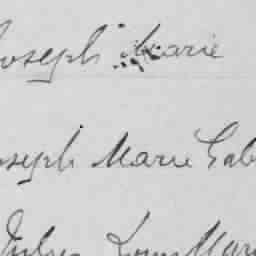 Joseph Marie
Joseph Marie Gab
Jules Louis Mari